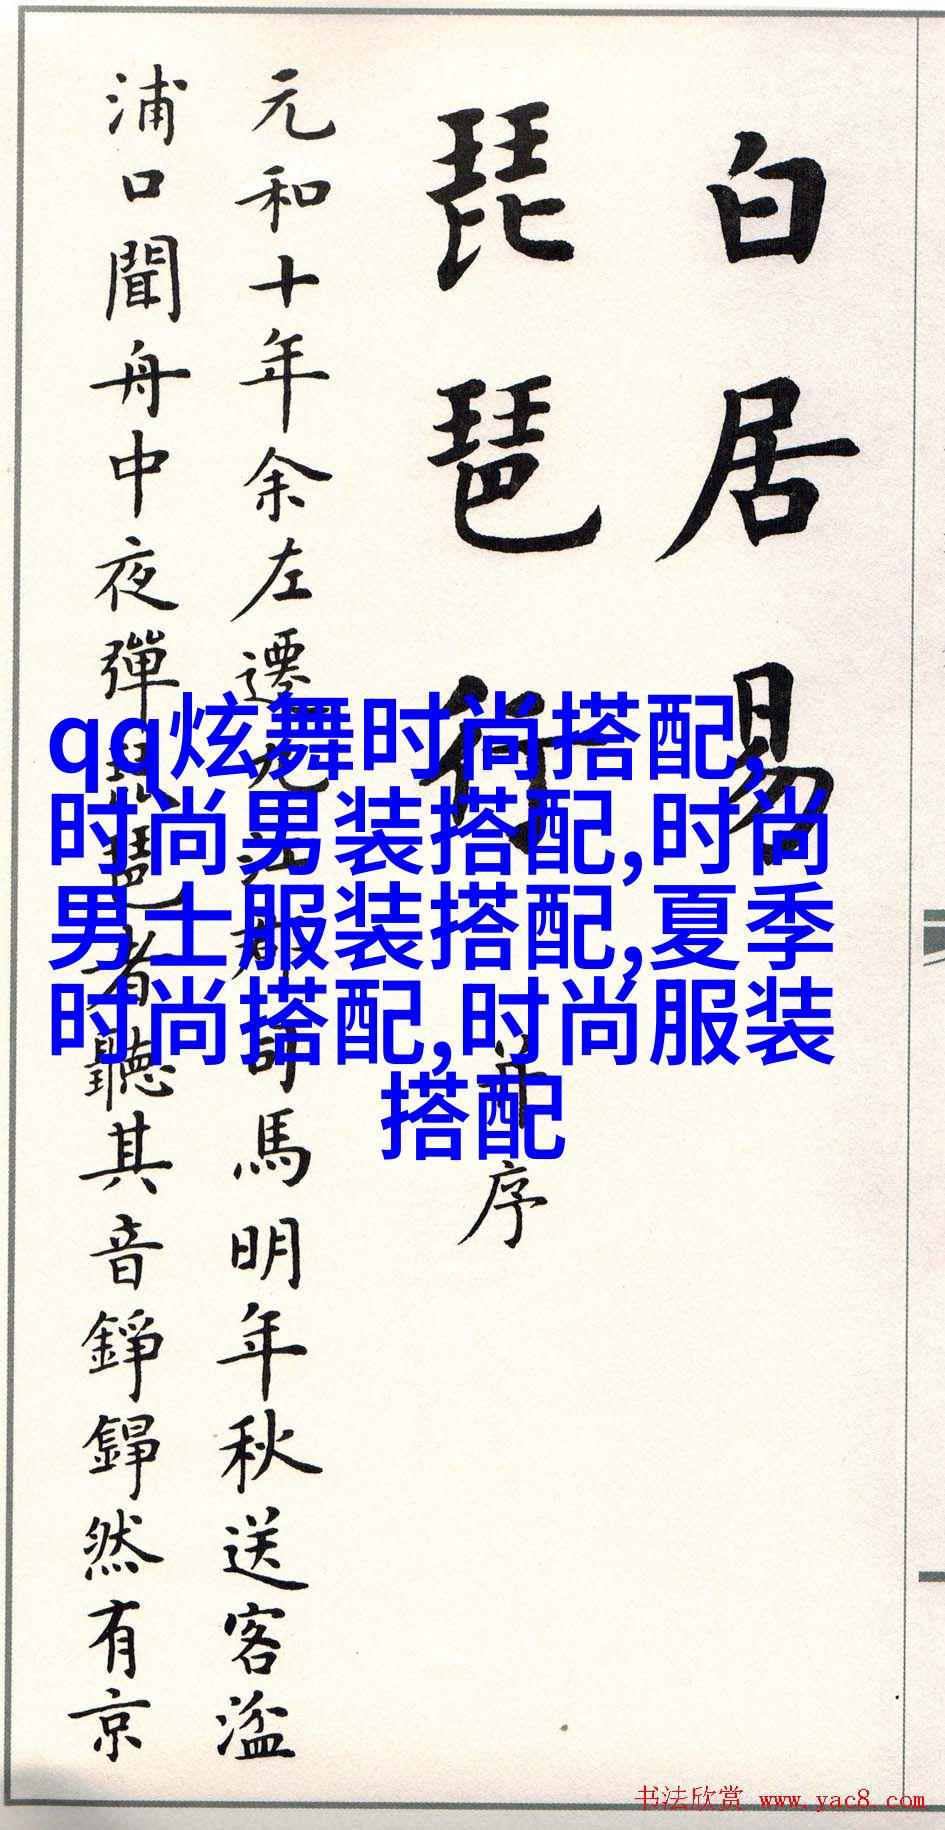 白居易
琵琶行
并序
元和十年余左遷九江郡司馬明年秋送客湓
浦口聞舟中夜彈琵琶者聽其音錚錚然有京
qq炫舞时尚搭配,
时尚男装搭配,时尚
男士服装搭配,夏季
时尚搭配,时尚服装
搭配
书法欣赏 www.yac8.com